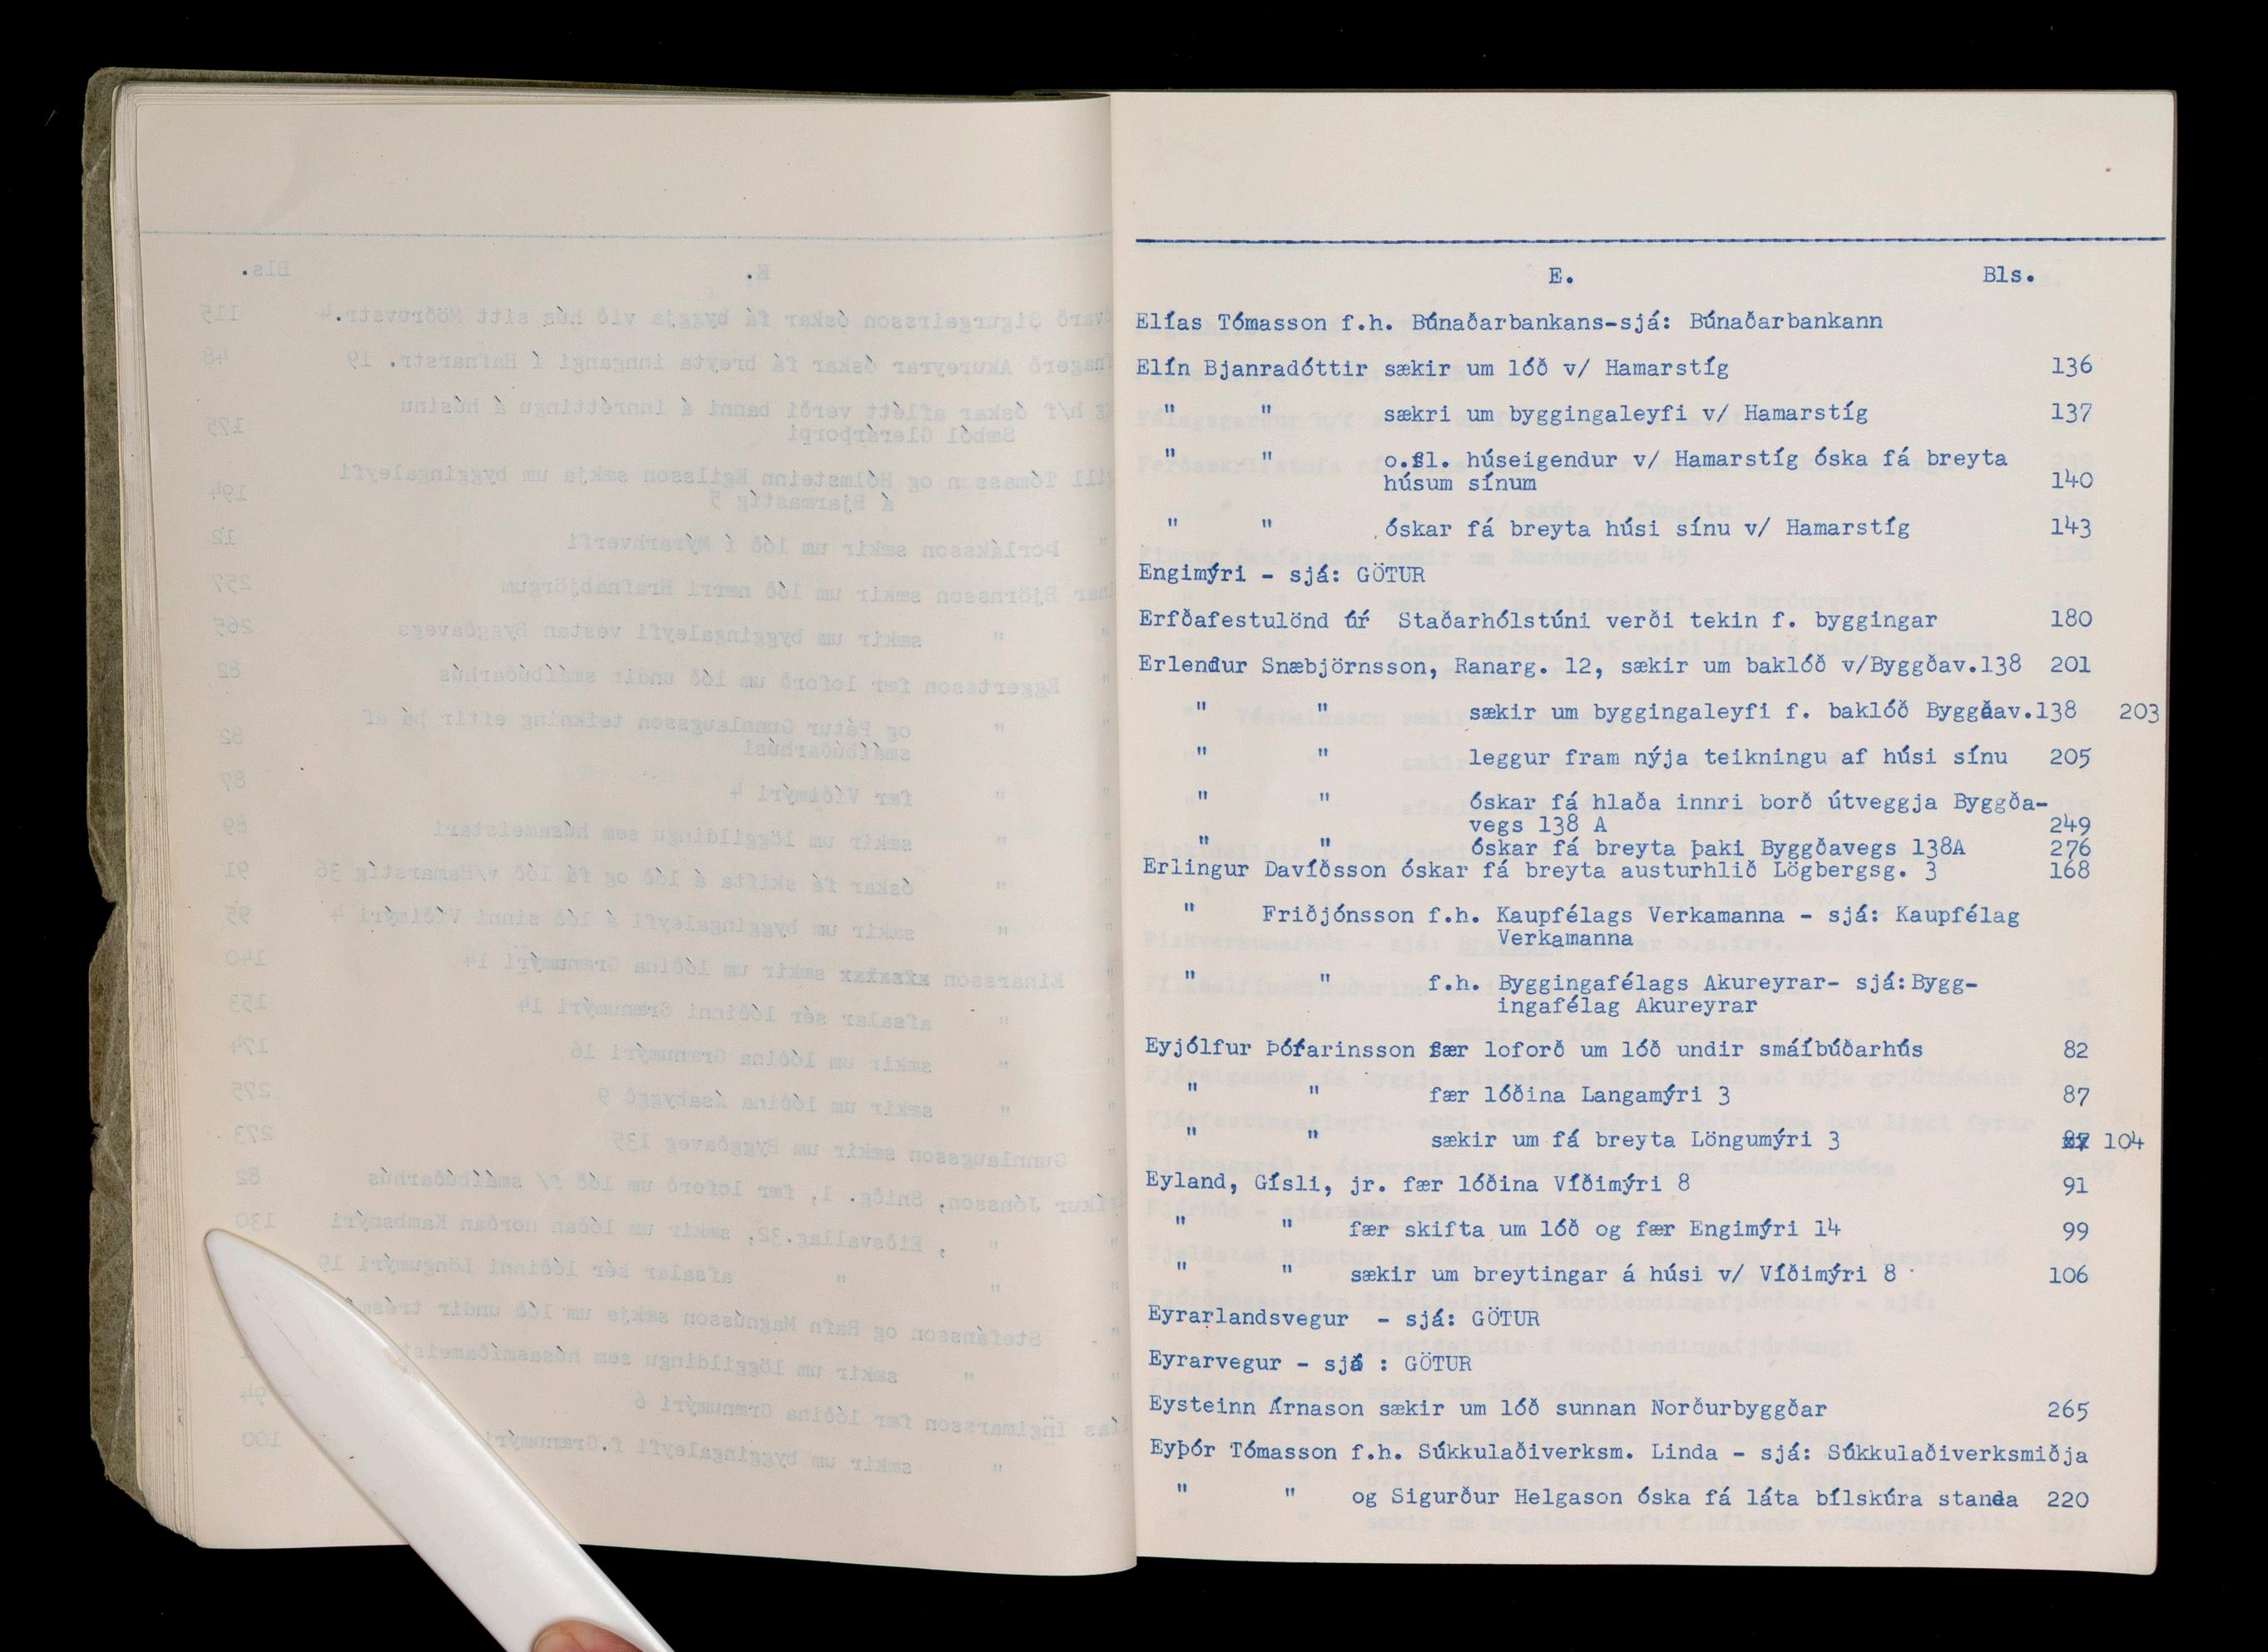 E. Bls.
Elías Tómasson f.h. Búnaðarbankans-sjá: Búnaðarbankann
Elín Bjanradóttir sækir um lóð v/ Hamarstíg 136
" " sækri um byggingaleyfi v/ Hamarstíg 137
" " o.fl. húseigendur v/ Hamarstíg óska fá breyta
húsum sínum 140
" " óskar fá breyta húsi sínu v/ Hamarstíg 143
Engimýri - sjá: GÖTUR
Erfðafestulönd úr Staðarhólstúni verði tekin f. byggingar 180
Erlendur Snæbjörnsson, Ranarg. 12, sækir um baklóð v/Byggðav.138 201
" " sækir um byggingaleyfi f. baklóð Byggðav.138 203
" " leggur fram nýja teikningu af húsi sínu 205
" " óskar fá hlaða innri borð útveggja Byggða-
vegs 138 A 249
" " óskar fá breyta þaki Byggðavegs 138A 276
Erlingur Davíðsson óskar fá breyta austurhlið Lögbergsg. 3 168
" Friðjónsson f.h. Kaupfélags Verkamanna - sjá: Kaupfélag
Verkamanna
" " f.h. Byggingafélags Akureyrar- sjá:Bygg-
ingafélag Akureyrar
Eyjólfur Þórarinsson fær loforð um lóð undir smáíbúðarhús 82
" " fær lóðina Langamýri 3 87
" " sækir um fá breyta Löngumýri 3 104
Eyland, Gísli, jr. fær lóðina Víðimýri 8 91
" " fær skifta um lóð og fær Engimýri 14 99
" " sækir um breytingar á húsi v/ Víðimýri 8 106
Eyrarlandsvegur - sjá: GÖTUR
Eyrarvegur - sjá : GÖTUR
Eysteinn Árnason sækir um lóð sunnan Norðurbyggðar 265
Eyþór Tómasson f.h. Súkkulaðiverksm. Linda - sjá: Súkkulaðiverksmiðja
" " og Sigurður Helgason óska fá láta bílskúra standa 220